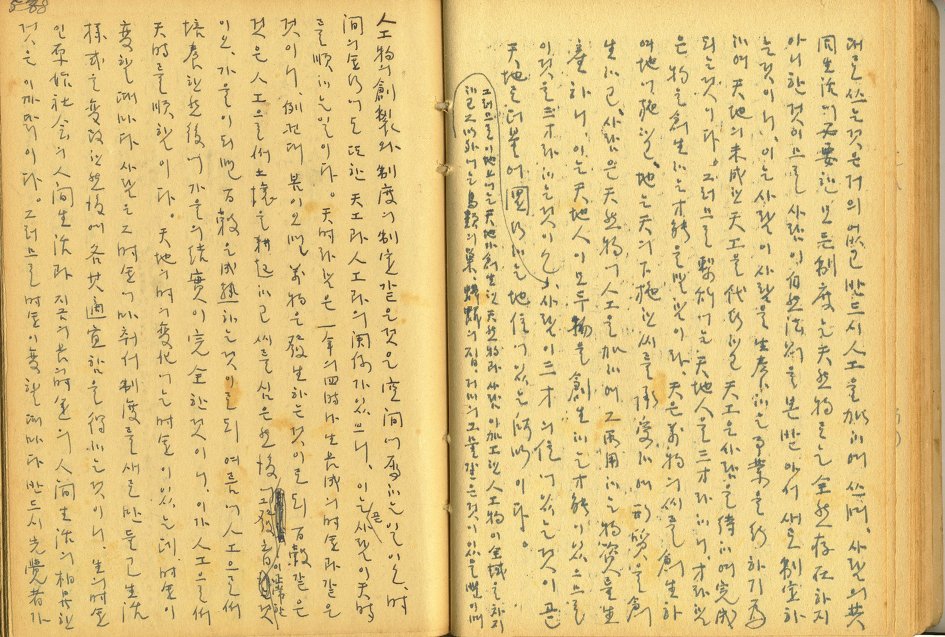 대로 쓰는것은 거의 없고 반드시 人工을 加하여 쓰며, 사람의 共
同生活에 必要한 모든 制度는 天然物로는 全然 存在하지
아니한 것이므로 사람이 自然法則을 본받아서 새로 制定하
는것이니, 이는 사람이 사람을 生產하는 事業을 行하기 爲
하여 天地의 未成한 天工을 代行하고 天工은 사람을 待하여 完成
되는것이다. 그러므로 繫辭에는 天地人을 三才라 하니, 才라함
은 物을 創生하는 才能을 말함이다. 天은 萬物의 씨를 創生하
여 地에 施하고, 地는 天의 下施한 씨를 承受하여 形質을 創
生하고, 사람은 天然物에 人工을 加하여 그 利用하는 物資를 生
產하니, 이는 天地人이 모두 物을 創生하는 才能이 있으므로
이것을 三才라 하는것이오, 사람이 三才의 位에 있는것이 곧
天地로 더불어 하는 地位에 있는 所以이다.
그러므로 이 地上에는 天地가 創生한 天然物과 사람이 加工한 人工物이 全域을 차지
하고 그 밖에는 鳥類의 巢 의 집 거미의 그물 같은것이 있을뿐이며
人工物의 創製와 制度의 制定 같은것은 空間에 屬하는 일이오, 時
間의 運行에도 또한 天工과 人工과의 關係가 있으니, 이는 곧 사람이 天時
를 順하는 일이다. 天時라 함은 一年의 四時와 生長成의 時運과 같은
것이니, 例컨대 봄이 오면 萬物을 發生하는 것이로되 百穀같은
것은 人工으로써 土壤을 耕起하고 씨를 심은 然後에 發育되는 것
이오, 가을이 되면 百穀을 成熟하는것이로되 여름에 人工으로써
培養한 然後에 가을의 結實이 完全한것이니, 이가 人工으로써
天時를 順함이다. 天地의 時의 變化에는 時運이 있는데, 時運이
變할때마다 사람은 그 時運에 마춰서 制度를 새로 만들고 生活
樣式을 變改한 然後에 各其 適宜함을 得하는것이니, 生의 時運
인 原始社會의 人間生活과 지금의 長의 時運의 人間生活의 相異한
것은 이 까닭이다. 그러므로 時運이 變할때마다 반드시 先覺者가